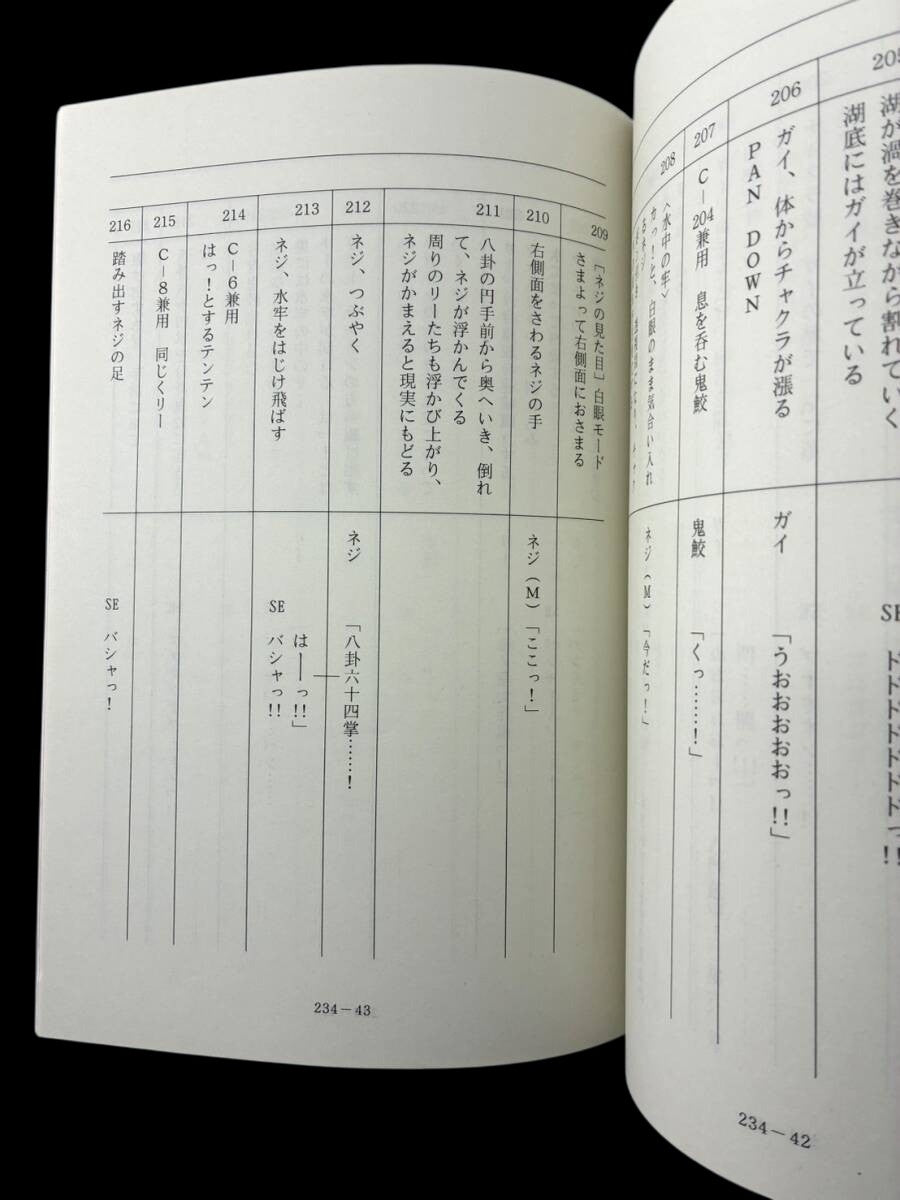 205
湖が渦を巻きながら割れていく
湖底にはガイが立っている
SE ドドドドドドドっ!!
206
ガイ、体からチャクラが漲る
PAN DOWN
ガイ 「うおおおおおっ!!」
207
C−204兼用 息を呑む鬼鮫
鬼鮫 「くっ……!」
208
〈水中の牢〉
カっ!と、白眼のまま気合い入れ
るネジ
ネジ(M)「今だっ!」
234−42
209
[ネジの見た目]白眼モード
さまよって右側面におさまる
210
右側面をさわるネジの手
ネジ(M)「ここっ!」
211
八卦の円手前から奥へいき、倒れ
て、ネジが浮かんでくる
周りのリーたちも浮かび上がり、
ネジがかまえると現実にもどる
212
ネジ、つぶやく
ネジ 「八卦六十四掌……!
213
ネジ、水牢をはじけ飛ばす
は──っ!!」
SE バシャっ!!
214
C−6兼用
はっ!とするテンテン
215
C−8兼用 同じくリー
216
踏み出すネジの足
SE バシャっ!
234−43